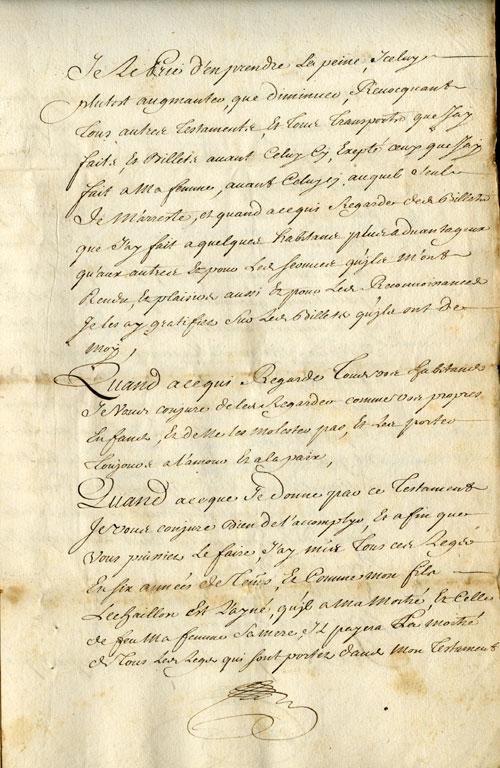 Je Le Prie d'en prendre La peine, Iceluy
plutost augmanter, que diminuer, Revocquant
Tous autres Testaments, Et Tous Transports que J'ay
faits, Et Billets avant Celuy Cy, Exepté ceux que J'ay
fait a Ma femme, avant Celuycy, auquel seul
Je M'arreste, et quand acequi Regarde les Billets
que J'ay fait a quelques habitans plus advantageux
qu'aux autres Et pour Les services qu'ils M'ont
Rendu, Et plaisirs aussi Et pour Les Reconnoissances
Je les ay gratifiés Sur Les Billets qu'ils ont De
Moy,
Quand acequi Regarde Tous vos habitans
Je Vous conjure de les Regarder comme vos propres
Enfans, Et de Ne les Molester pas, Et Les porter
Toujours a l'amour Et a la paix,
Quand aceque Je donne par ce Testament
Je vous conjure Bien de l'acomplyr, Et afin que
Vous puissiez Le faire, J'ay mis Tous ces Legs
En six années de Tems, Et Comme mon fils
Lechaillon Est Payné, qu'il a Ma Moitié Et Celle
de feu Ma femme Sa mere, Il payera La Moitié
de Tous Les Legs qui sont portez dans mon Testament